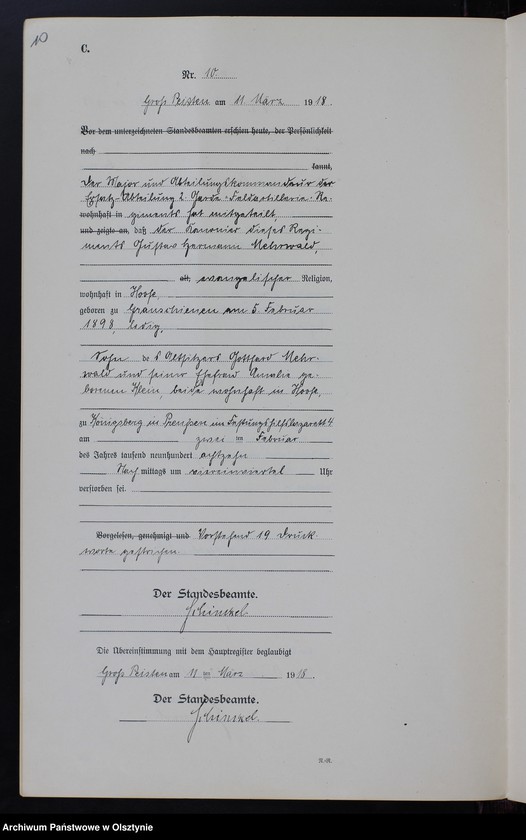 10
C.
Nr. 10
Groß Peisten am 11 März 1918.
Vor dem unterzeichneten Standesbeamten erschien heute, der Persönlichkeit
nach
kannt,
Der Major und Abteilungskommandeur der
Ersatz-Abteilung 2 Garde-Feldartillerie-Re-
wohnhaft in giments hat mitgeteilt,
und zeigte an, daß der Kanonier dieses Regi-
ments Gustav Hermann Mehrwald,
alt, evangelischer Religion,
wohnhaft in Hoofe,
geboren zu am 5. Februar
1898, ledig,
Sohn des Altsitzers Gotthard Mehr-
wald und seiner Ehefrau Amalie ge-
borenen Klein, beide wohnhaft in Hoofe,
zu Königsberg in Preußen im Festungshilfslazarett 4
am zwei im Februar
des Jahres tausend neunhundert achtzehn
Nach mittags um viereinviertel Uhr
verstorben sei.
Vorgelesen, genehmigt und Vorstehend 19 Druck-
worte gestrichen
Der Standesbeamte.
Schinckel
Die Übereinstimmung mit dem Hauptregister beglaubigt
Groß Peisten am 11 ten März 1918.
Der Standesbeamte.
Schinckel.
Archiwum Państwowe w Olsztynie